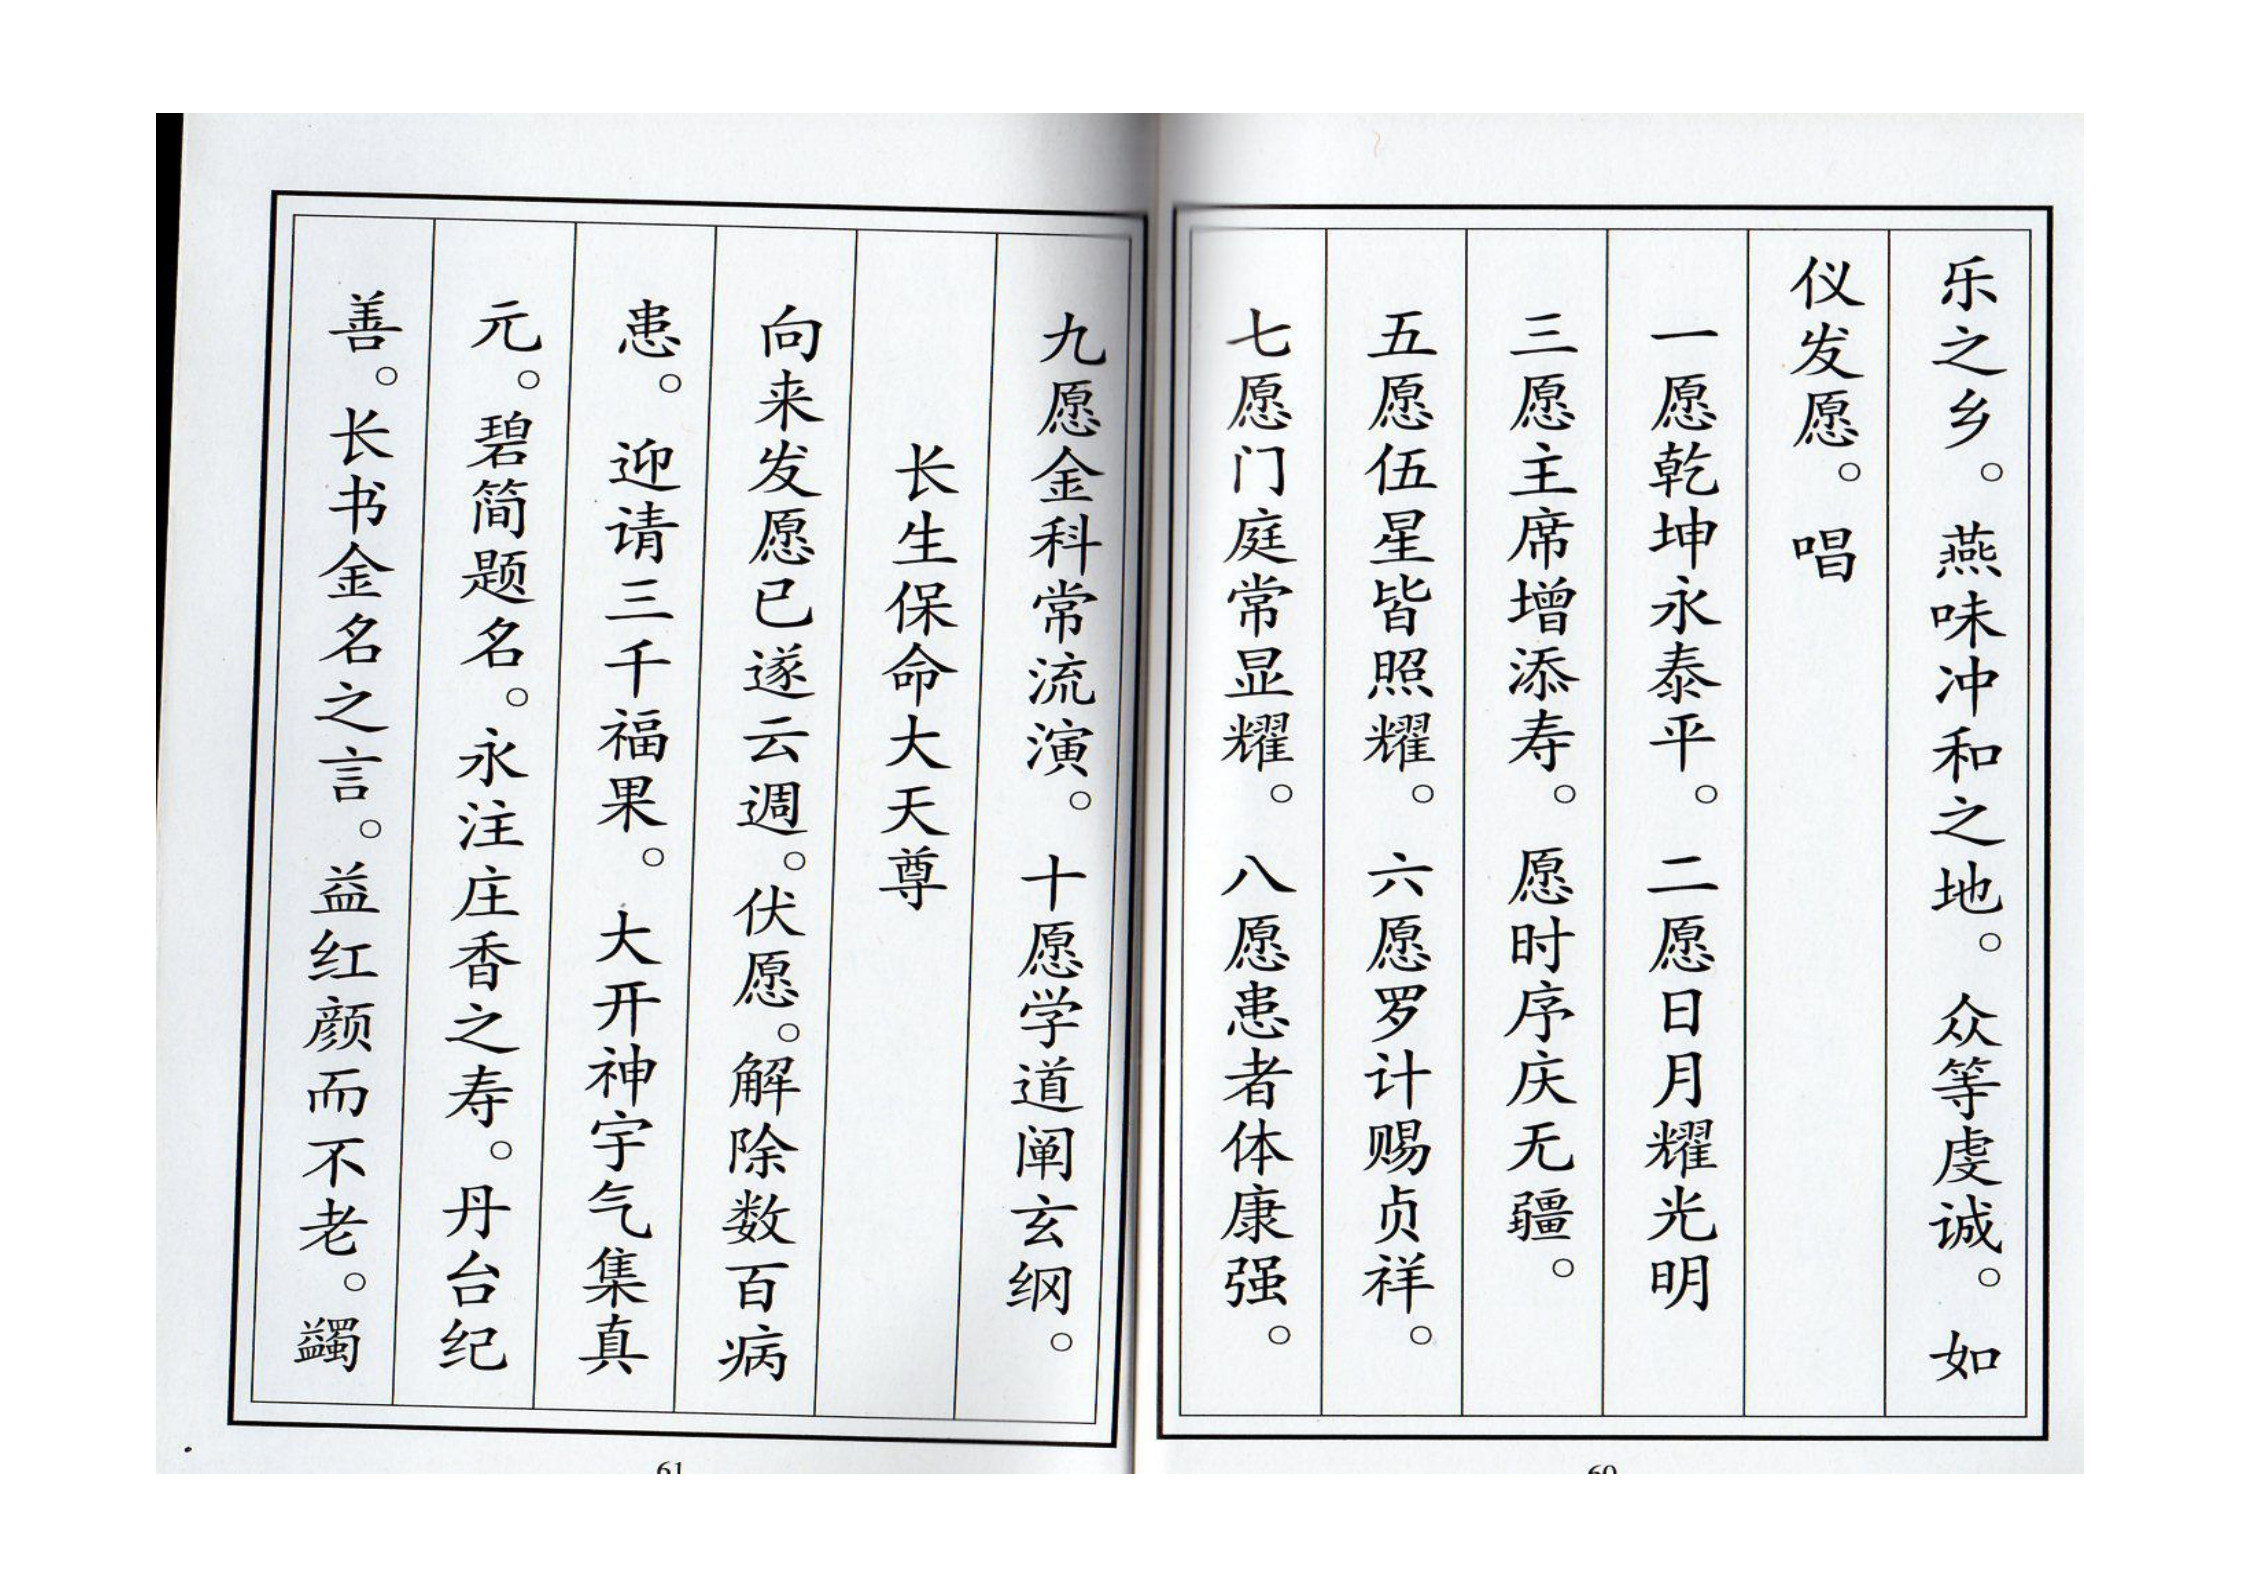 乐之乡。燕味冲和之地。众等虔诚。如
仪发愿。唱
一愿乾坤永泰平。二愿日月耀光明
三愿主席增添寿。愿时序庆无疆。
五愿伍星皆照耀。六愿罗计赐贞祥。
七愿门庭常显耀。八愿患者体康强。
60
九愿金科常流演。十愿学道阐玄纲。
长生保命大天尊
向来发愿已遂云週。伏愿。解除数百病
患。迎请三千福果。大开神宇气集真
元。碧简题名。永注庄香之寿。丹台纪
善。长书金名之言。益红颜而不老。蠲
61